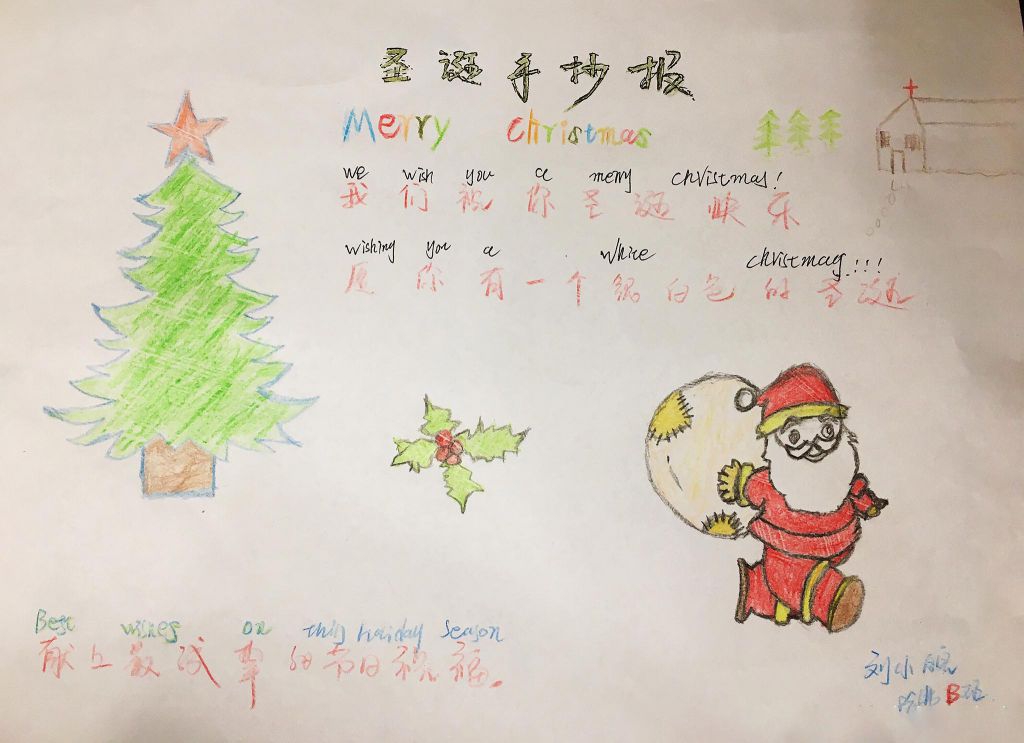 圣诞手抄报
Merry christmas
we wish you a merry christmas!
我们祝你圣诞快乐
wishing you a white christmas!!!
愿你有一个银白色的圣诞
Best wishes on this holiday season
献上最诚挚的节日祝福.
刘小
B班